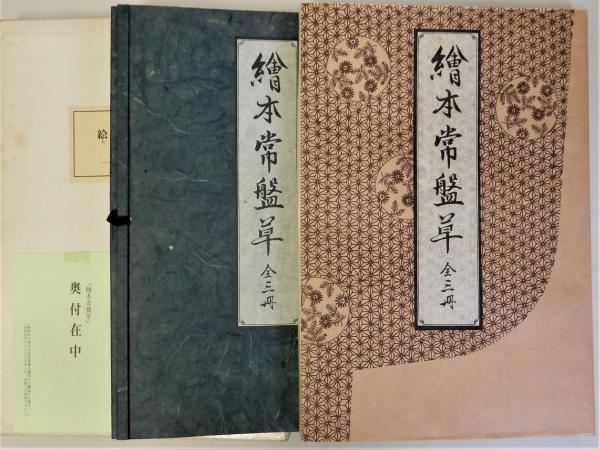 繪本常盤草 全三冊
繪本常盤草 全三冊
絵
「絵本常盤草」
奥付在中